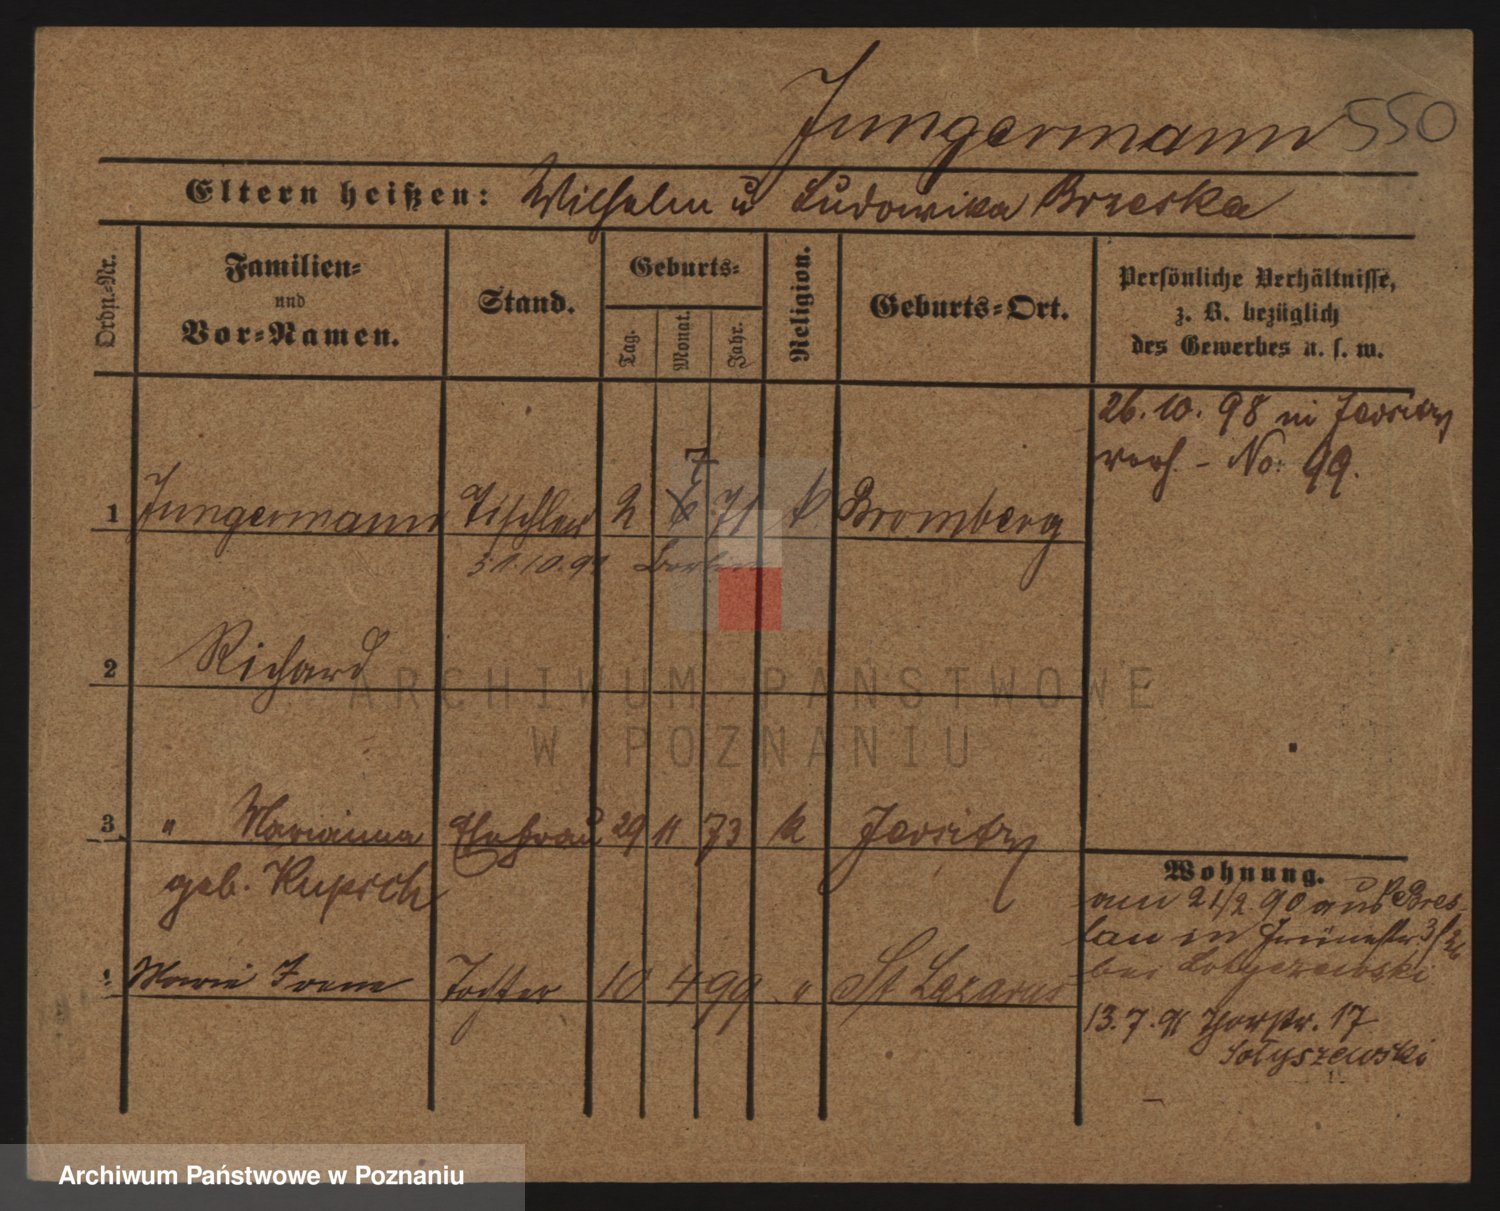 Jungermann 550
Eltern heißen: Wilhelm u Ludowika Brzeska
Ordn.-Nr.
Familien-
und
Vor-Namen.
Stand.
Geburts-
Tag.
Monat.
Jahr.
Religion.
Geburts-Ort.
Persönliche Verhältnisse,
z. B. bezüglich
des Gewerbes u. s. w.
26. 10. 98 in Jersitz
verh. - No: 99.
7
1 Jungermann Tischler 2 6 71 k Bromberg
31.10.91 Berlin
2 Richard
3 " Marianna Ehefrau 29 11 73 k Jersitz
geb. Kupsch
Wohnung.
am 21/2 90 aus Bres-
lau in Grünestr 3/
bei
4 Marie Irene Tochter 10 4 99 " St Lazarus
13. 7. 91 Thorstr. 17
Sołyszewski
ARCHIWUM PAŃSTWOWE
W POZNANIU
Archiwum Państwowe w Poznaniu